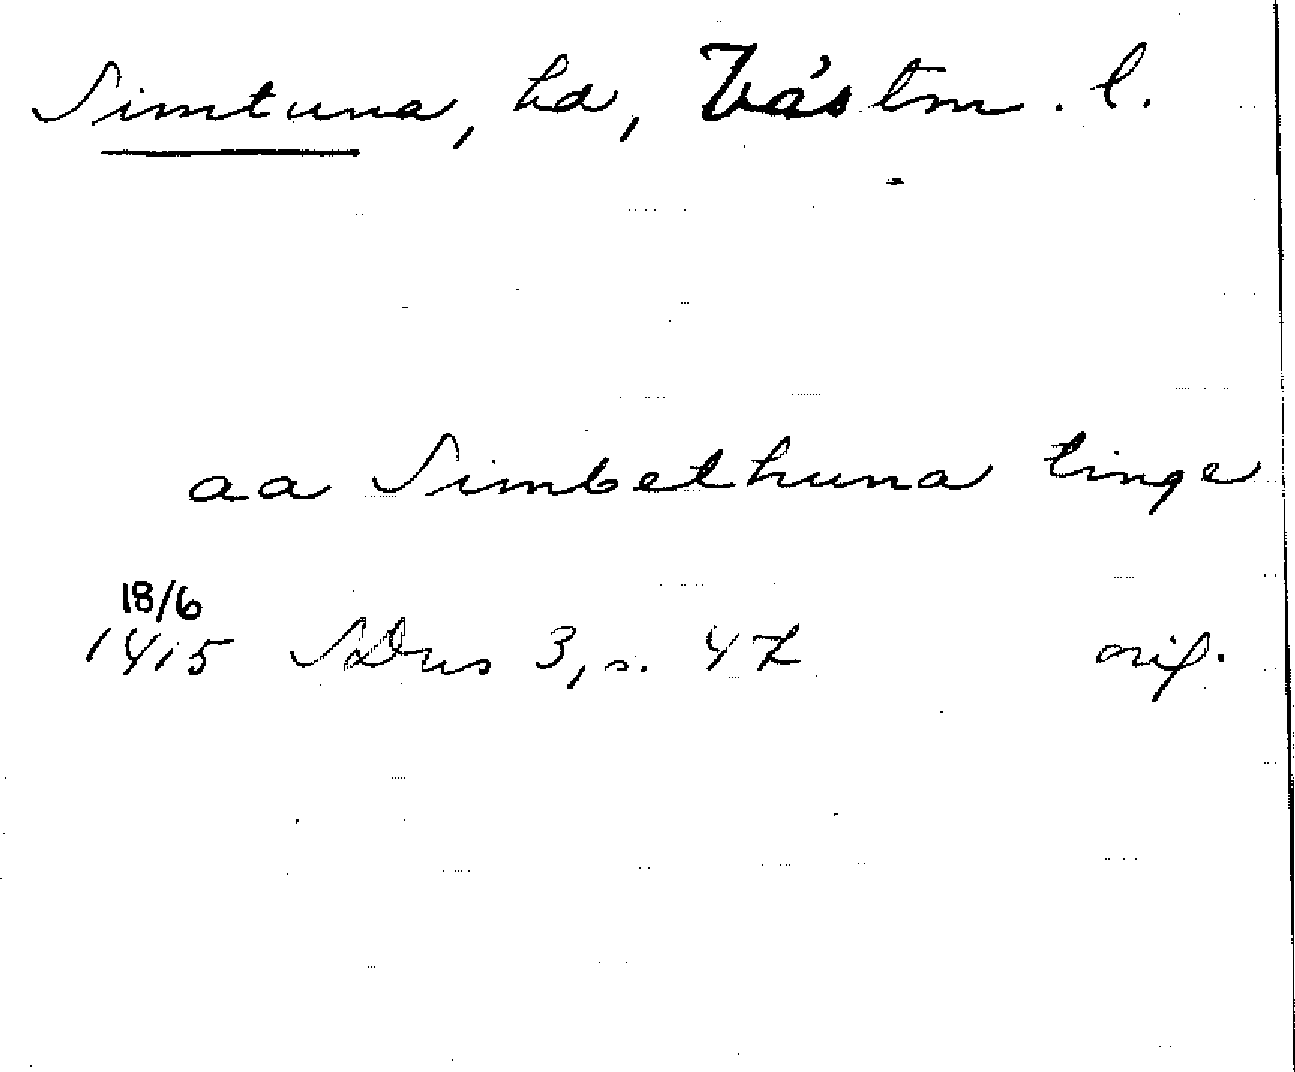 Simtuna, hd, Västm. l.
aa Simbethuna tinge
18/6
1415 SDns 3, s. 47 orig.